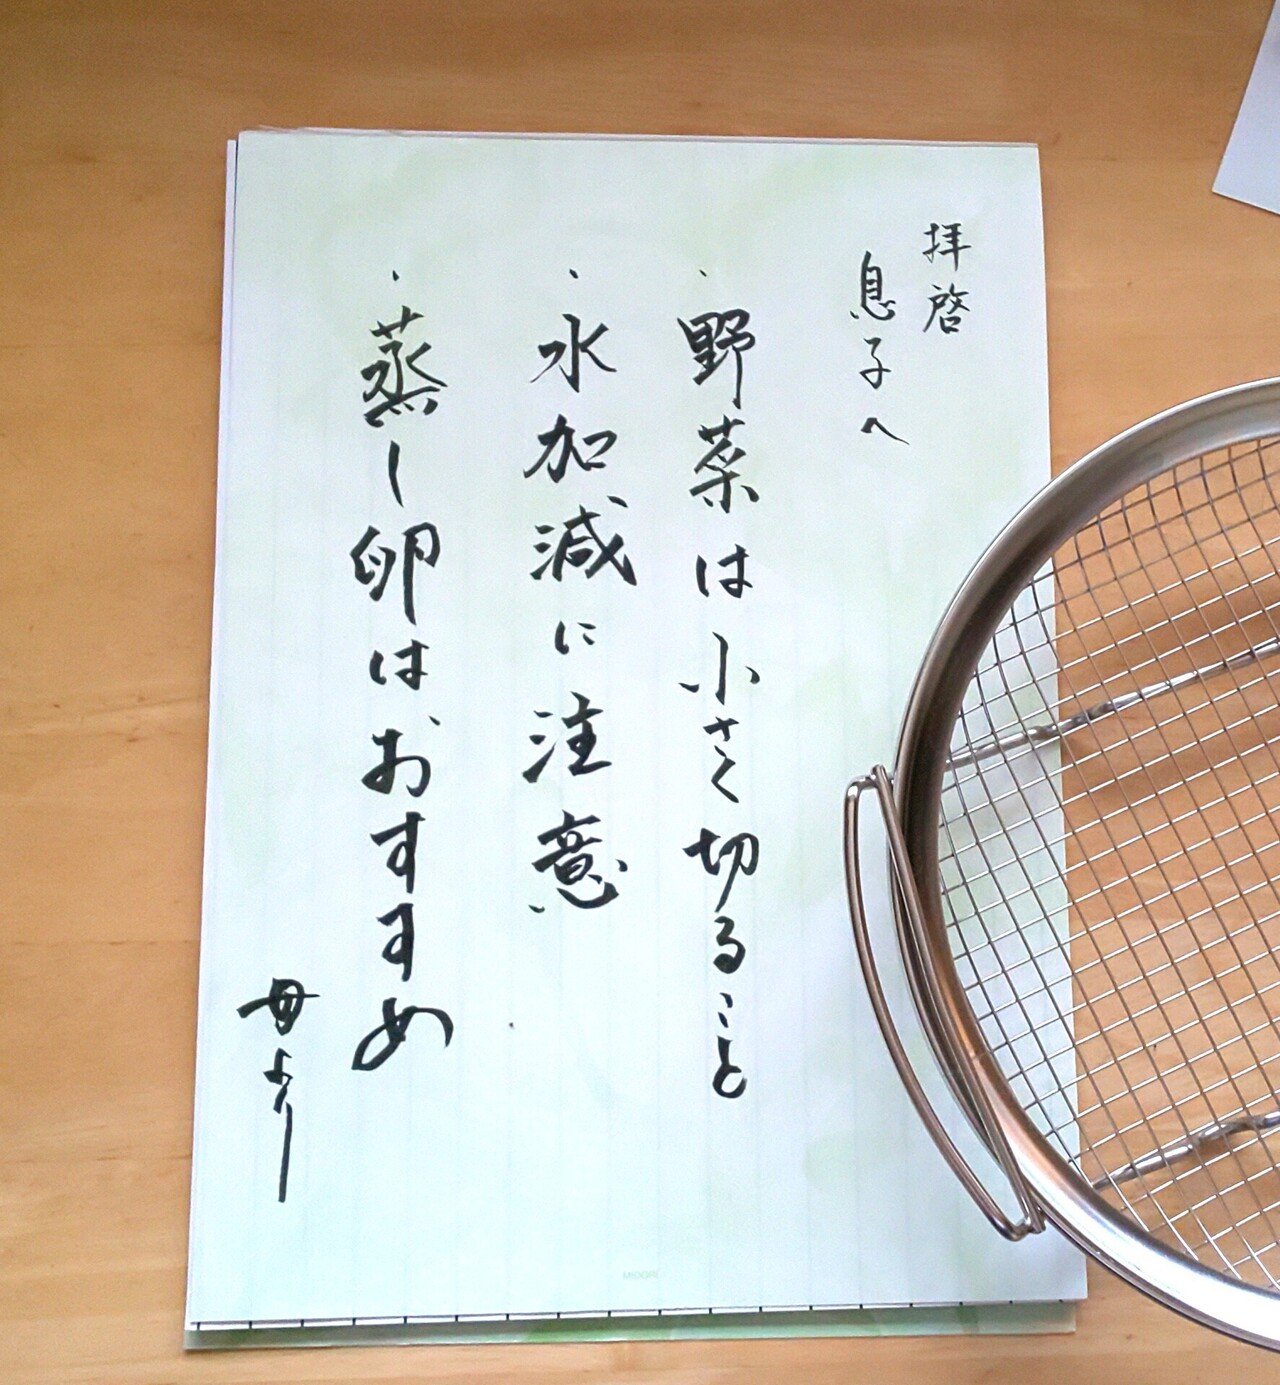 拝啓
息子へ
、野菜は小さく切ること
、水加減に注意
、蒸し卵はおすすめ
母より
MIDORI